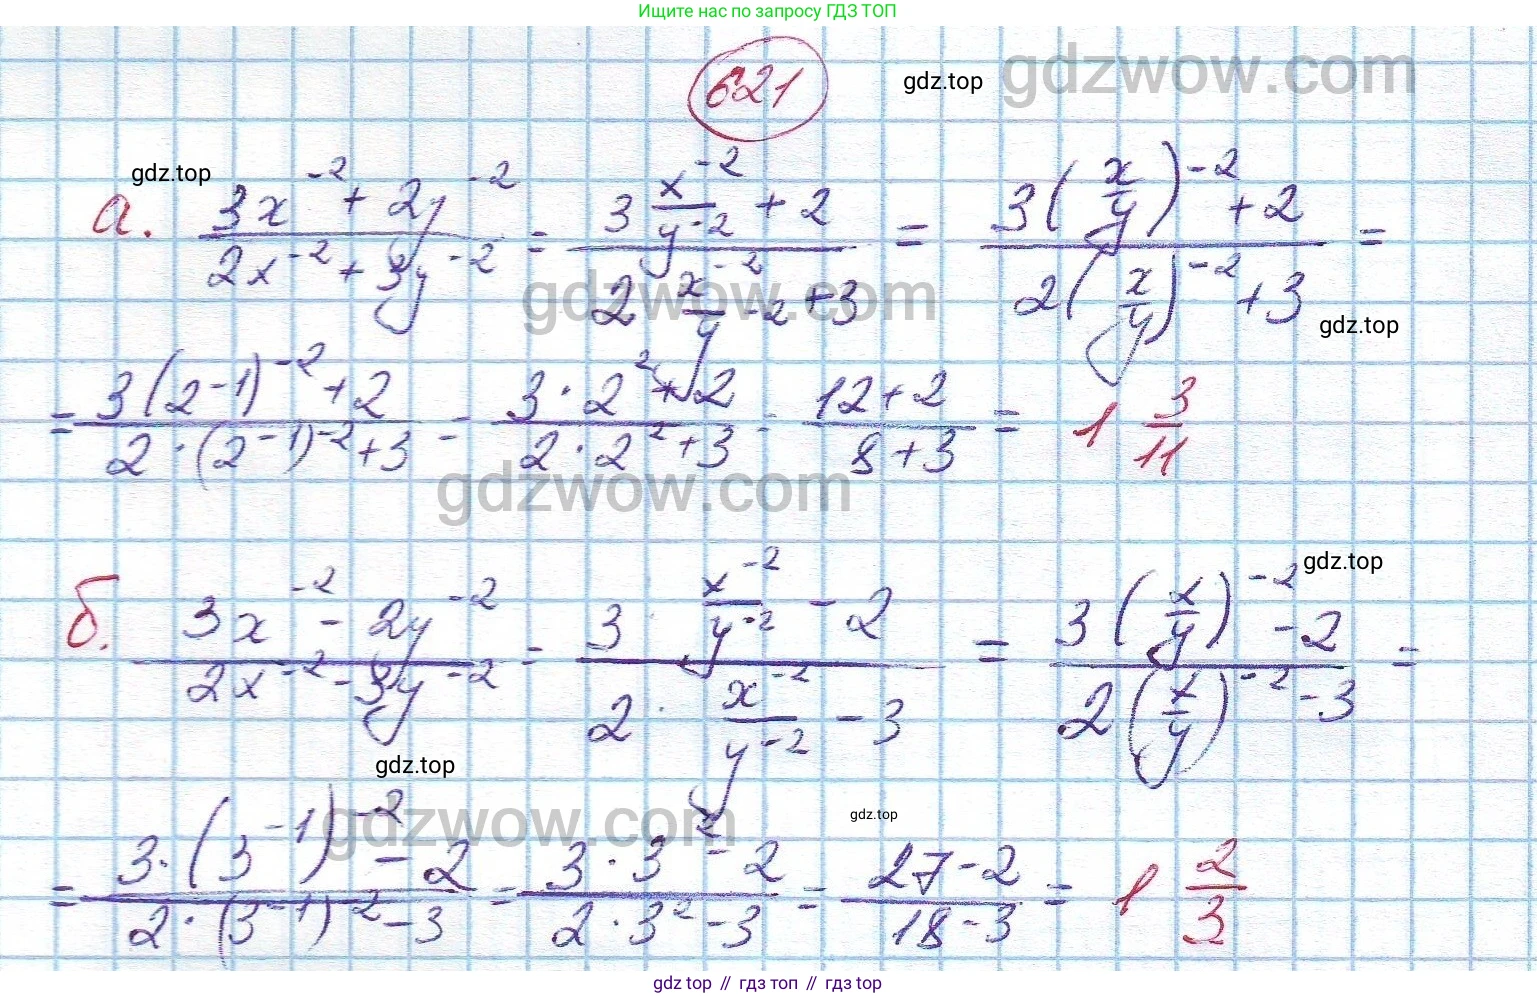 Ищите нас по запросу ГДЗ ТОП
621
gdz.top
gdzwow.com
gdz.top
а. (3x⁻² + 2y⁻²)/(2x⁻² + 3y⁻²) = (3 x⁻²/y⁻² + 2)/(2 x⁻²/y⁻² + 3) = (3(x/y)⁻² + 2)/(2(x/y)⁻² + 3) =
gdzwow.com
gdz.top
= (3(2⁻¹)⁻² + 2)/(2·(2⁻¹)⁻² + 3) = (3·2² + 2)/(2·2² + 3) = (12 + 2)/(8 + 3) = 1 3/11
gdzwow.com
gdz.top
б. (3x⁻² - 2y⁻²)/(2x⁻² - 3y⁻²) = (3· x⁻²/y⁻² - 2)/(2· x⁻²/y⁻² - 3) = (3(x/y)⁻² - 2)/(2(x/y)⁻² - 3) =
gdz.top
gdzwow.com
gdz.top
= (3·(3⁻¹)⁻² - 2)/(2·(3⁻¹)⁻² - 3) = (3·3² - 2)/(2·3² - 3) = (27 - 2)/(18 - 3) = 1 2/3
gdz top // гдз топ // гдз top